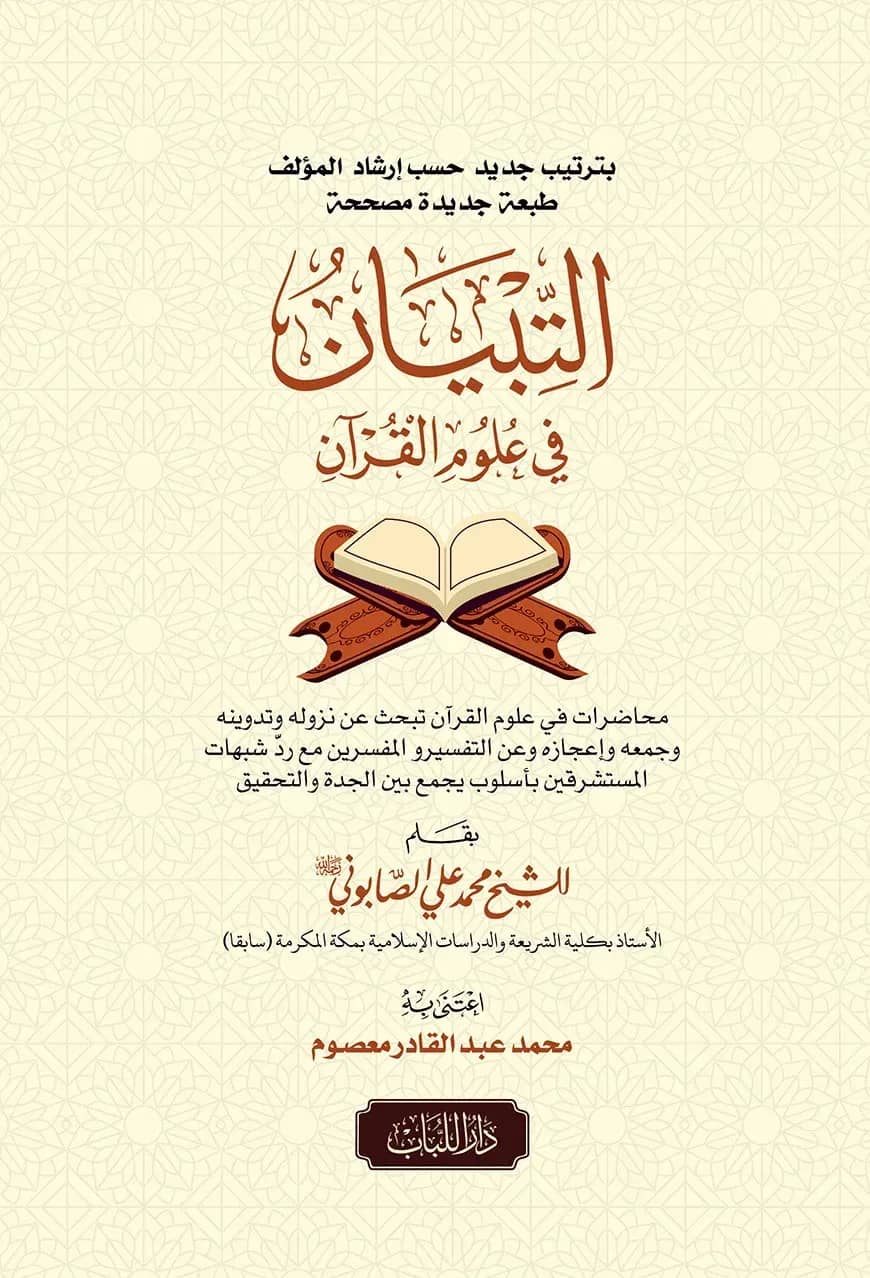 بترتيب جديد حسب إرشاد المؤلف
طبعة جديدة مصححة
التِّبْيَانُ
في عُلُومِ الْقُرْآنِ
محاضرات في علوم القرآن تبحث عن نزوله وتدوينه
وجمعه وإعجازه وعن التفسيرو المفسرين مع ردّ شبهات
المستشرقين بأسلوب يجمع بين الجدة والتحقيق
بقلم
للشيخ محمد علي الصّابوني رحمه الله
الأستاذ بكلية الشريعة والدراسات الإسلامية بمكة المكرمة (سابقا)
اعْتَنَى بِهِ
محمد عبد القادر معصوم
دَارُ اللُّبَابِ